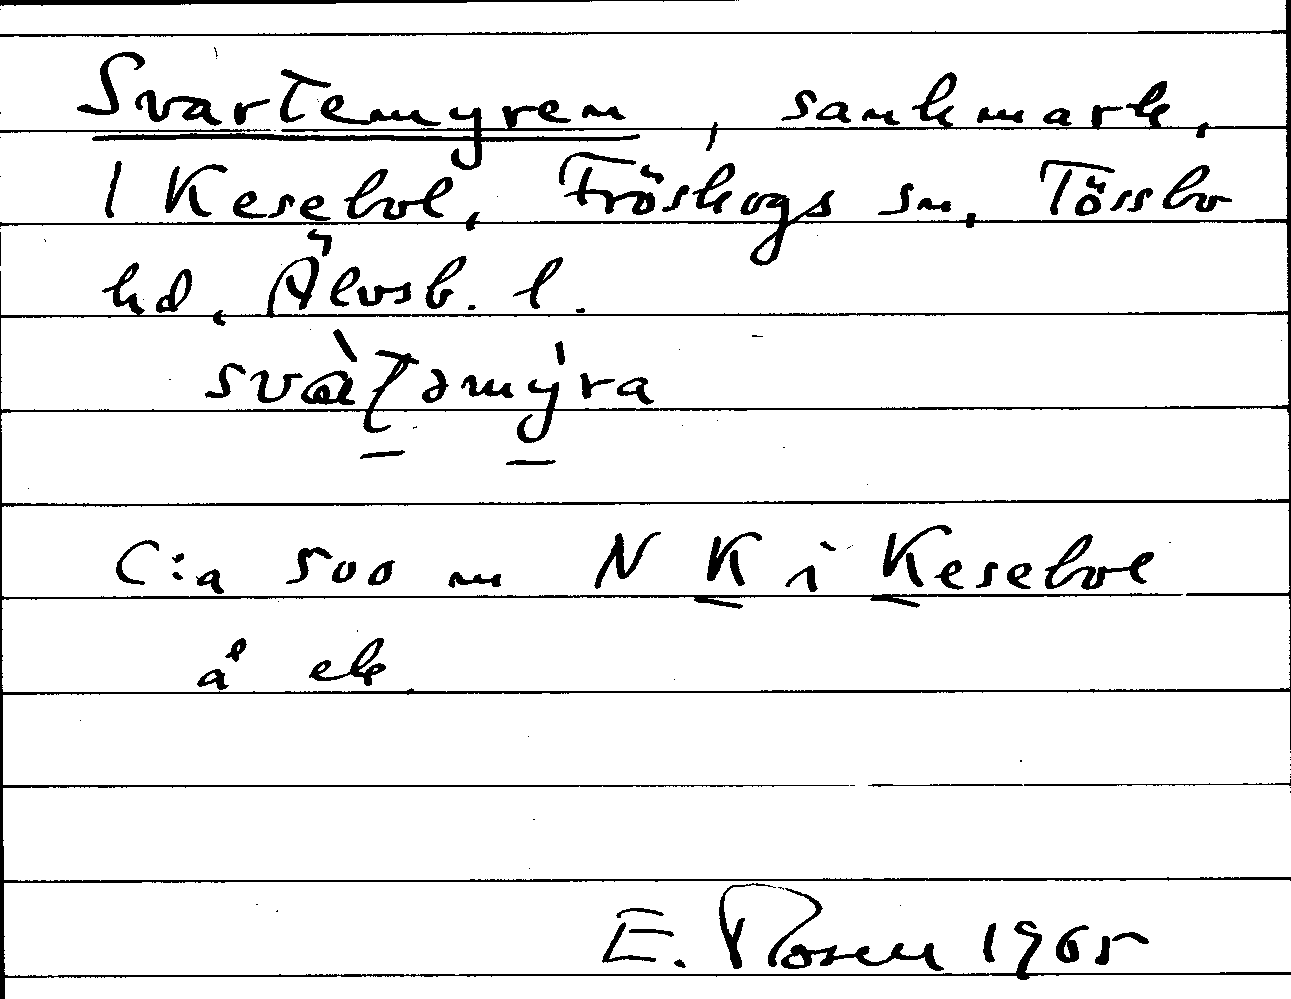 Svartemyren, sankmark,
1 Kesebol, Fröskogs sn, Tössbo
hd, Älvsb. l.
svàʈəmýra
C:a 500 m N K i Kesebol
å ek
E. Rosen 1965